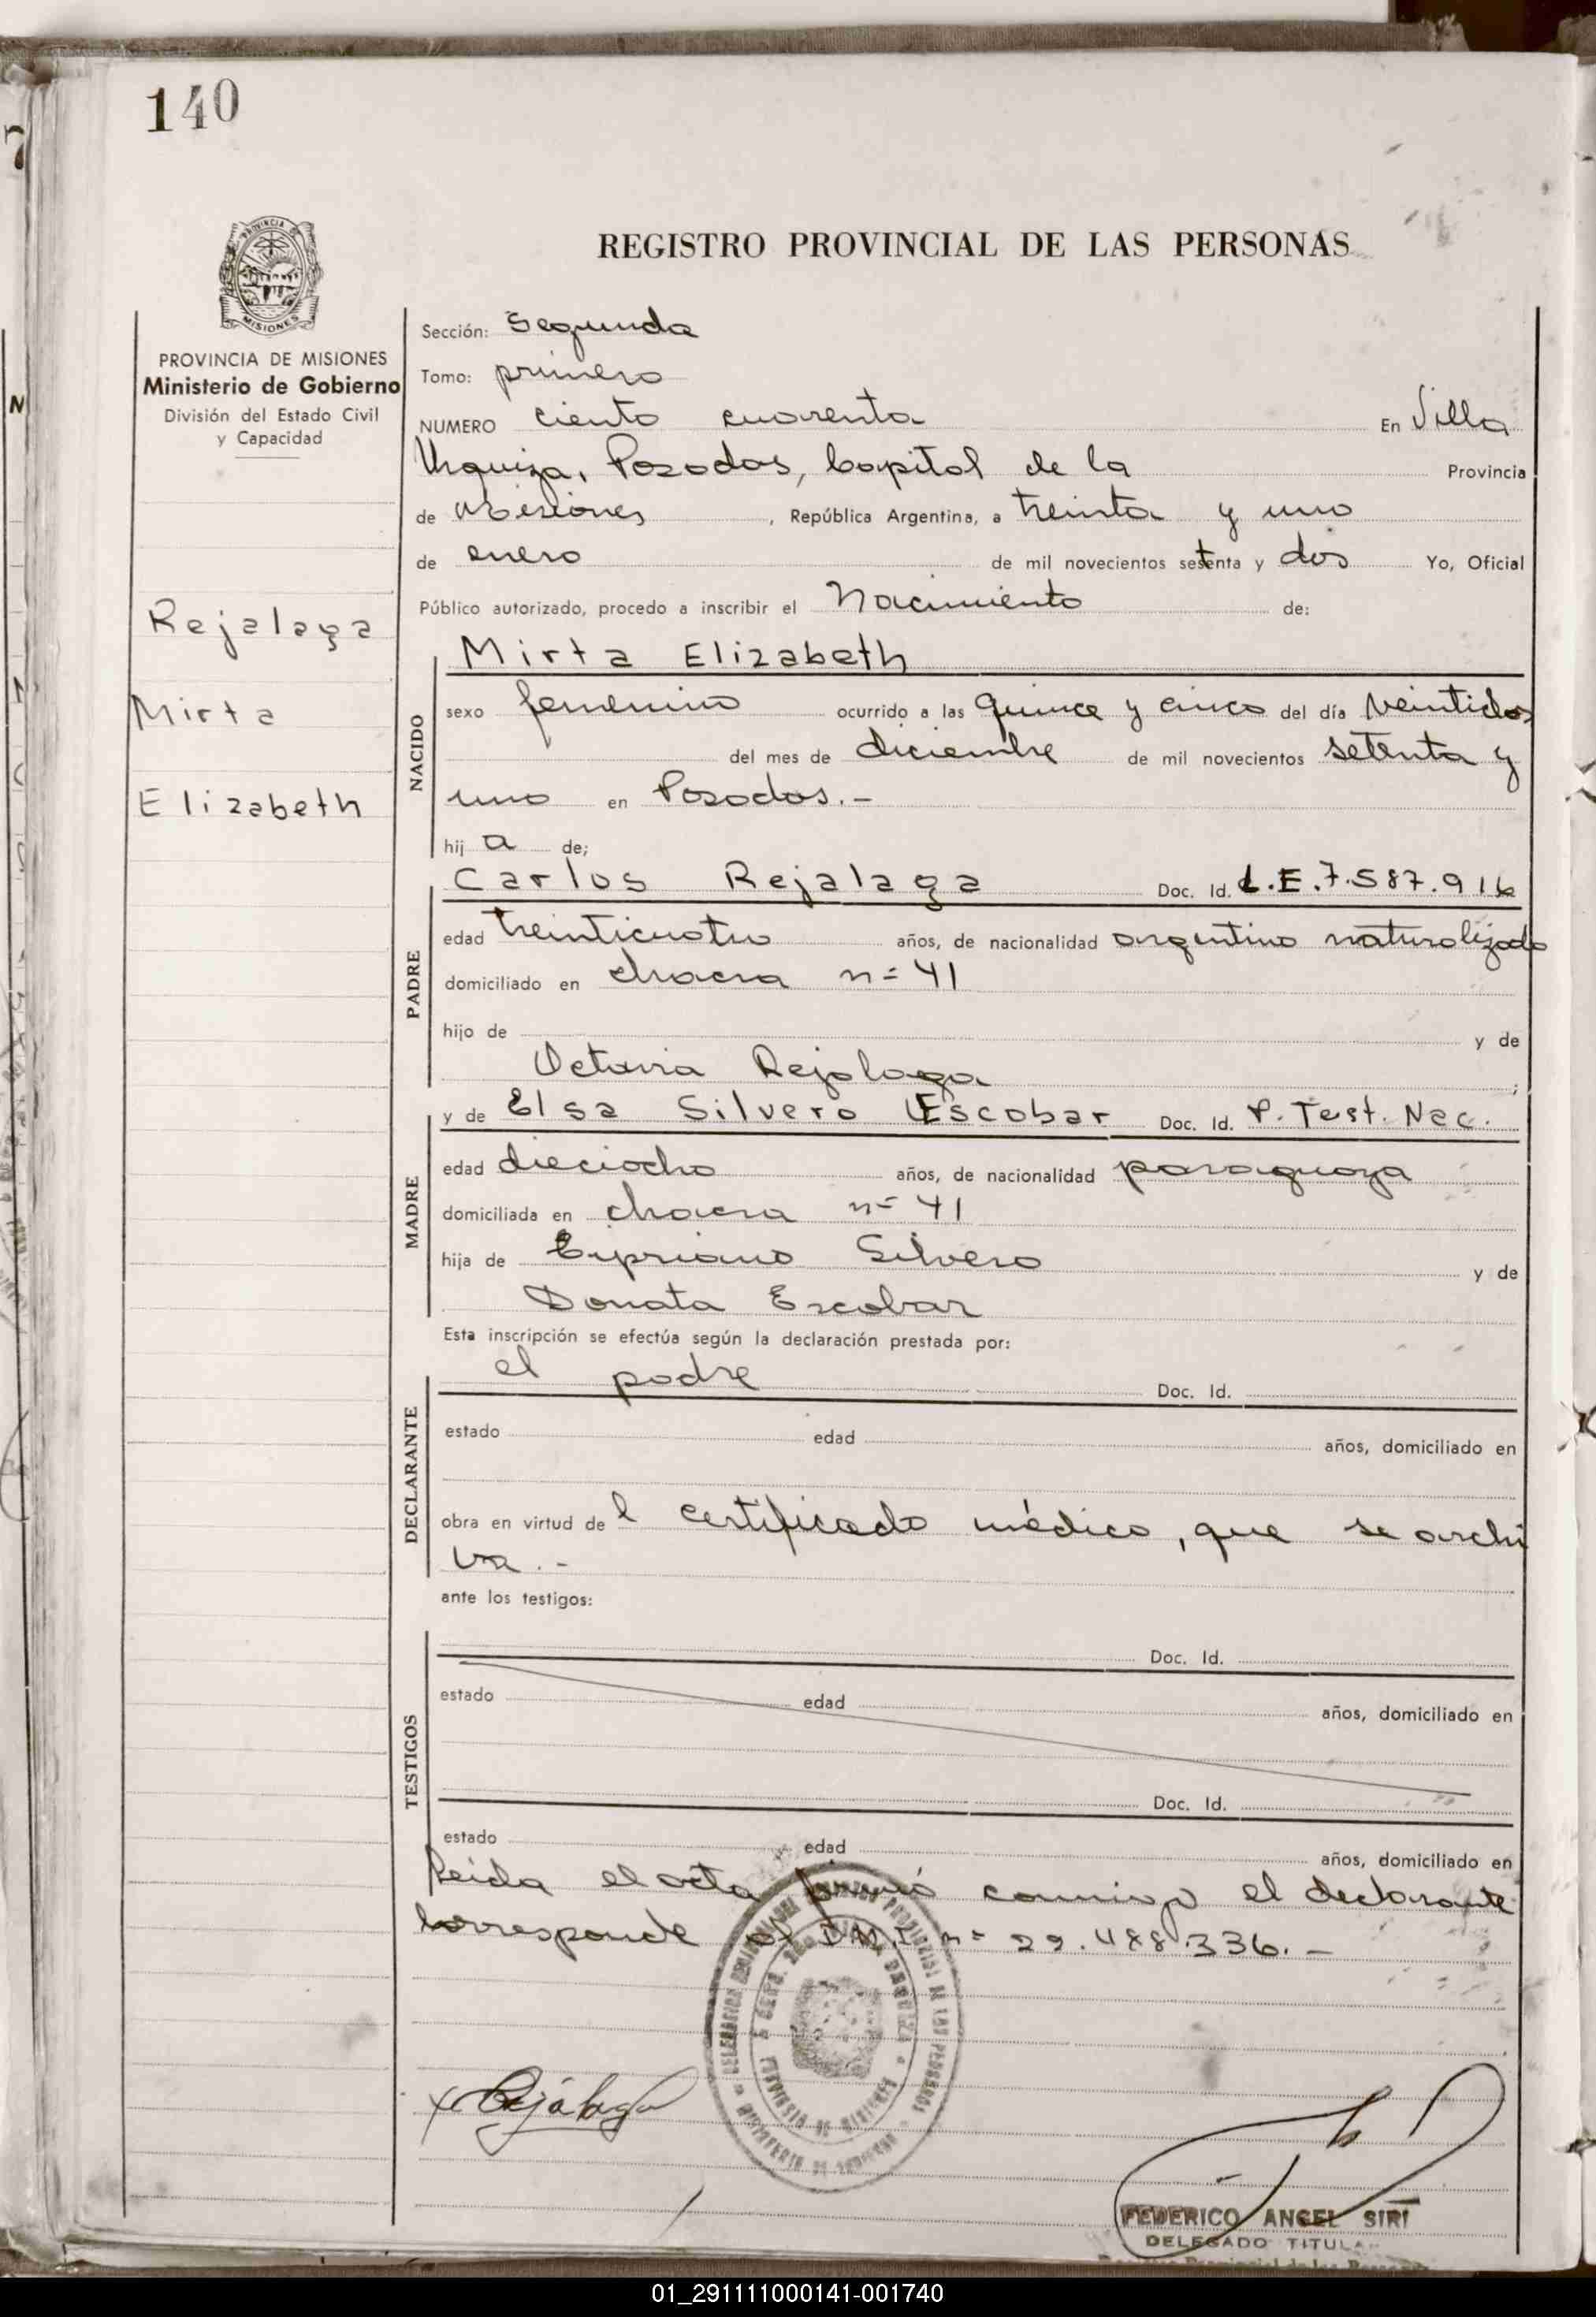 140
PROVINCIA DE
MISIONES
PROVINCIA DE MISIONES
Ministerio de Gobierno
División del Estado Civil
y Capacidad
Rejalaga
Mirta
Elizabeth
REGISTRO PROVINCIAL DE LAS PERSONAS
Sección: Segunda
Tomo: primero
NUMERO ciento cuarenta En Villa
Urquiza, Posadas, Capital de la Provincia
de Misiones, República Argentina, a treinta y uno
de enero de mil novecientos setenta y dos Yo, Oficial
Público autorizado, procedo a inscribir el Nacimiento de:
NACIDO
Mirta Elizabeth
sexo femenino ocurrido a las quince y cinco del día veintidos
del mes de diciembre de mil novecientos setenta y
uno en Posadas.-
hij a de;
PADRE
Carlos Rejalaga Doc. Id. L.E.7.587.916
edad treinticuatro años, de nacionalidad argentino naturalizado
domiciliado en chacra n= 41
hijo de y de
Octavia Rejalaga ;
MADRE
y de Elsa Silvero Escobar Doc. Id. P. Test. Nac.
edad dieciocho años, de nacionalidad paraguaya
domiciliada en chacra n= 41
hija de Cipriano Silvero y de
Donata Escobar
Esta inscripción se efectúa según la declaración prestada por:
DECLARANTE
el padre Doc. Id.
estado edad años, domiciliado en
obra en virtud de l certificado médico, que se archi
va.-
ante los testigos:
TESTIGOS
Doc. Id.
estado edad años, domiciliado en
Doc. Id.
estado edad años, domiciliado en
Leida el acta firmó conmigo el declarante
Corresponde al D.N.I n= 22.488.336.-
Rejálaga
PROVINCIA DE MISIONES
MINISTERIO DE GOBIERNO
FEDERICO ANGEL SIRI
DELEGADO TITULAR
01_291111000141-001740